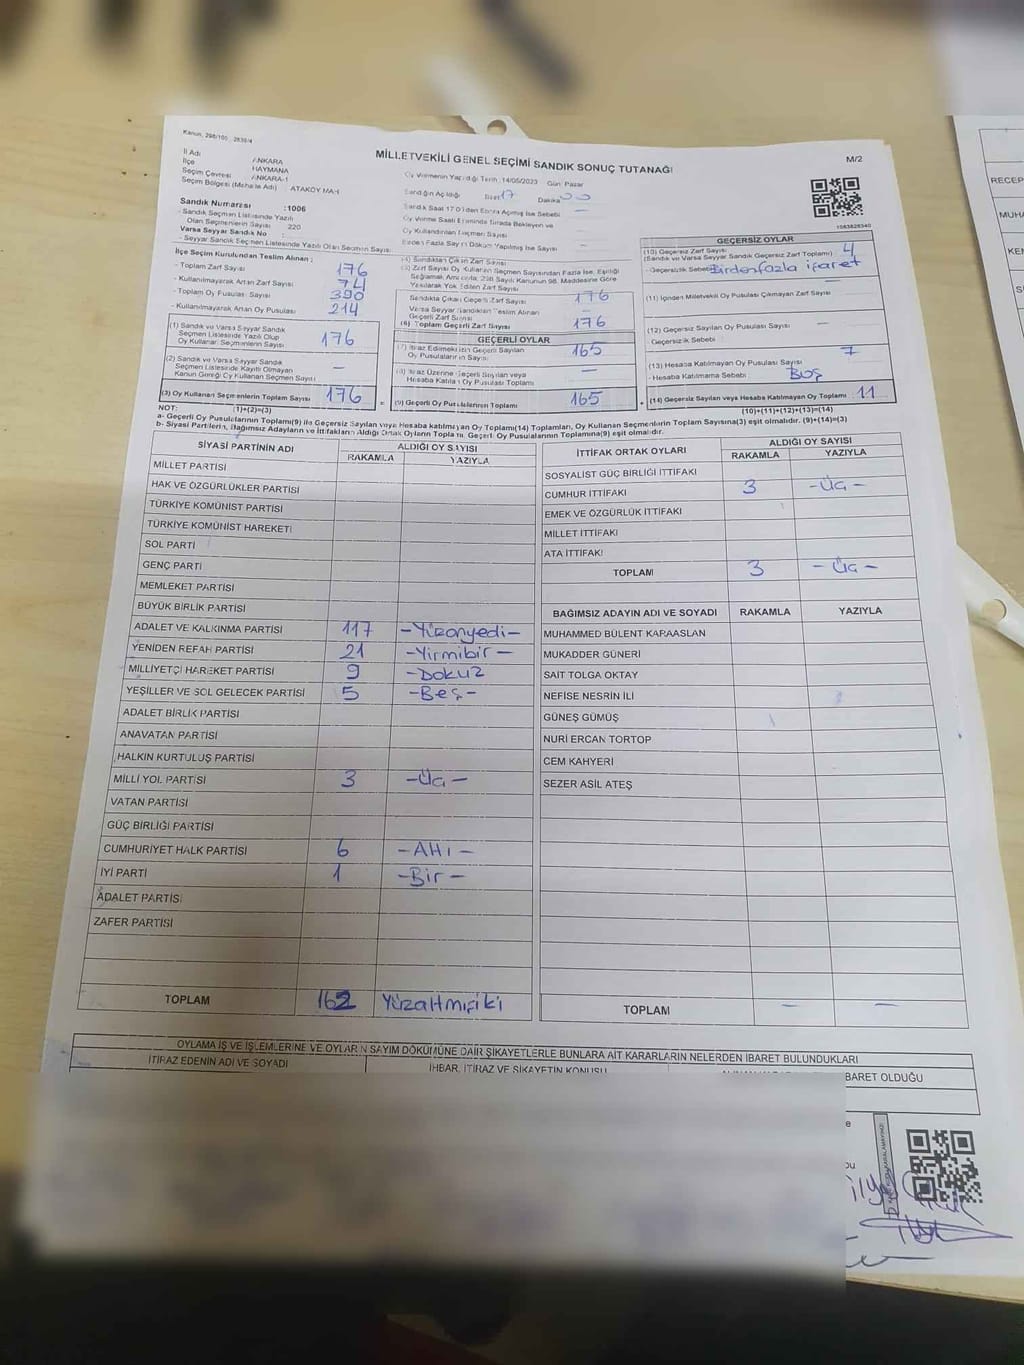 Kanun, 298/105, 2839/4
MİLLETVEKİLİ GENEL SEÇİMİ SANDIK SONUÇ TUTANAĞI
M/2
İl Adı ANKARA
İlçe HAYMANA
Seçim Çevresi ANKARA-1
Seçim Bölgesi (Mahalle Adı) ATAKÖY MAH
Sandık Numarası :1006
- Sandık Seçmen Listesinde Yazılı
Olan Seçmenlerin Sayısı 220
Varsa Seyyar Sandık No :
- Seyyar Sandık Seçmen Listesinde Yazılı Olan Seçmen Sayısı
Oy Vermenin Yapıldığı Tarih :14/05/2023 Gün: Pazar
Sandığın Açıldığı Saat 17 Dakika 00
Sandık Saat 17.00'den Sonra Açılmış İse Sebebi —
Oy Verme Saati Bitiminde Sırada Bekleyen ve
Oy Kullandırılan Seçmen Sayısı —
Birden Fazla Sayım Döküm Yapılmış İse Sayısı —
İlçe Seçim Kurulundan Teslim Alınan ;
- Toplam Zarf Sayısı 176
- Kullanılmayarak Artan Zarf Sayısı 74
- Toplam Oy Pusulası Sayısı 390
- Kullanılmayarak Artan Oy Pusulası 214
(1) Sandık ve Varsa Seyyar Sandık
Seçmen Listesinde Yazılı Olup
Oy Kullanan Seçmenlerin Sayısı 176
(2) Sandık ve Varsa Seyyar Sandık
Seçmen Listesinde Kayıtlı Olmayan
Kanun Gereği Oy Kullanan Seçmen Sayısı —
(3) Oy Kullanan Seçmenlerin Toplam Sayısı 176
(1)+(2)=(3)
(4) Sandıktan Çıkan Zarf Sayısı
(5) Zarf Sayısı Oy Kullanan Seçmen Sayısından Fazla İse, Eşitliği
Sağlamak Amacıyla, 298 Sayılı Kanunun 98. Maddesine Göre
Yakılarak Yok Edilen Zarf Sayısı
Sandıkta Çıkan Geçerli Zarf Sayısı 176
Varsa Seyyar Sandıktan Teslim Alınan
Geçerli Zarf Sayısı —
(6) Toplam Geçerli Zarf Sayısı 176
GEÇERLİ OYLAR
(7) İtiraz Edilmeksizin Geçerli Sayılan
Oy Pusulalarının Sayısı 165
(8) İtiraz Üzerine Geçerli Sayılan veya
Hesaba Katılan Oy Pusulası Toplamı —
(9) Geçerli Oy Pusulalarının Toplamı 165
1583828340
GEÇERSİZ OYLAR
(10) Geçersiz Zarf Sayısı 4
(Sandık ve Varsa Seyyar Sandık Geçersiz Zarf Toplamı)
- Geçersizlik Sebebi Birden fazla işaret
(11) İçinden Milletvekili Oy Pusulası Çıkmayan Zarf Sayısı —
(12) Geçersiz Sayılan Oy Pusulası Sayısı —
Geçersizlik Sebebi
(13) Hesaba Katılmayan Oy Pusulası Sayısı 7
- Hesaba Katılmama Sebebi Boş
(14) Geçersiz Sayılan veya Hesaba Katılmayan Oy Toplamı 11
(10)+(11)+(12)+(13)=(14)
NOT:
a- Geçerli Oy Pusulalarının Toplamı(9) ile Geçersiz Sayılan veya Hesaba katılmayan Oy(14) Toplamları, Oy Kullanan Seçmenlerin Toplam Sayısına(3) eşit olmalıdır. (9)+(14)=(3)
b- Siyasi Partilerin, Bağımsız Adayların ve İttifakların Aldığı Ortak Oyların Toplamı, Geçerli Oy Pusulalarının Toplamına(9) eşit olmalıdır.
SİYASİ PARTİNİN ADI ALDIĞI OY SAYISI
RAKAMLA YAZIYLA
MİLLET PARTİSİ
HAK VE ÖZGÜRLÜKLER PARTİSİ
TÜRKİYE KOMÜNİST PARTİSİ
TÜRKİYE KOMÜNİST HAREKETİ
SOL PARTİ
GENÇ PARTİ
MEMLEKET PARTİSİ
BÜYÜK BİRLİK PARTİSİ
ADALET VE KALKINMA PARTİSİ 117 -Yüzonyedi-
YENİDEN REFAH PARTİSİ 21 -Yirmibir-
MİLLİYETÇİ HAREKET PARTİSİ 9 -Dokuz
YEŞİLLER VE SOL GELECEK PARTİSİ 5 -Beş-
ADALET BİRLİK PARTİSİ
ANAVATAN PARTİSİ
HALKIN KURTULUŞ PARTİSİ
MİLLİ YOL PARTİSİ 3 -Üç-
VATAN PARTİSİ
GÜÇ BİRLİĞİ PARTİSİ
CUMHURİYET HALK PARTİSİ 6 -Altı-
İYİ PARTİ 1 -Bir-
ADALET PARTİSİ
ZAFER PARTİSİ
TOPLAM 162 Yüzaltmışiki
İTTİFAK ORTAK OYLARI ALDIĞI OY SAYISI
RAKAMLA YAZIYLA
SOSYALİST GÜÇ BİRLİĞİ İTTİFAKI
CUMHUR İTTİFAKI 3 -Üç-
EMEK VE ÖZGÜRLÜK İTTİFAKI
MİLLET İTTİFAKI
ATA İTTİFAKI
TOPLAM 3 -Üç-
BAĞIMSIZ ADAYIN ADI VE SOYADI RAKAMLA YAZIYLA
MUHAMMED BÜLENT KARAASLAN
MUKADDER GÜNERİ
SAİT TOLGA OKTAY
NEFİSE NESRİN İLİ
GÜNEŞ GÜMÜŞ
NURİ ERCAN TORTOP
CEM KAHYERİ
SEZER ASİL ATEŞ
TOPLAM — —
OYLAMA İŞ VE İŞLEMLERİNE VE OYLARIN SAYIM DÖKÜMÜNE DAİR ŞİKAYETLERLE BUNLARA AİT KARARLARIN NELERDEN İBARET BULUNDUKLARI
İTİRAZ EDENİN ADI VE SOYADI İHBAR, İTİRAZ VE ŞİKAYETİN KONUSU BARET OLDUĞU
RECEP
MUHA
KEM